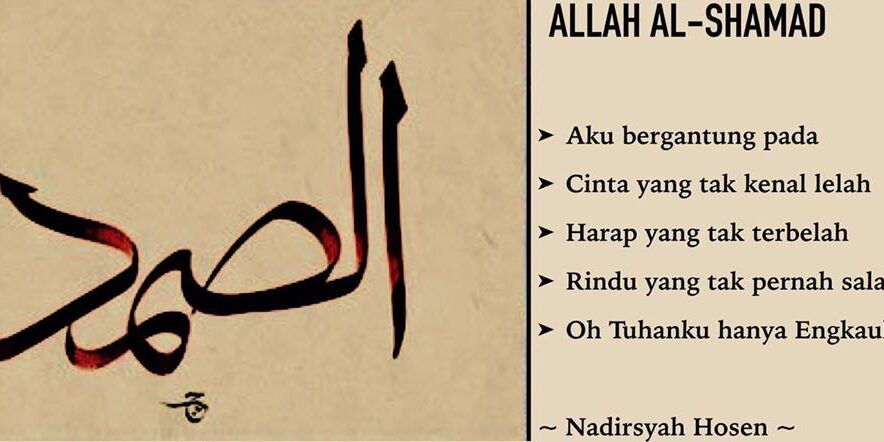 الصمد
ALLAH AL-SHAMAD
➤ Aku bergantung pada
➤ Cinta yang tak kenal lelah
➤ Harap yang tak terbelah
➤ Rindu yang tak pernah
➤ Oh Tuhanku hanya
~ Nadirsyah Hosen ~